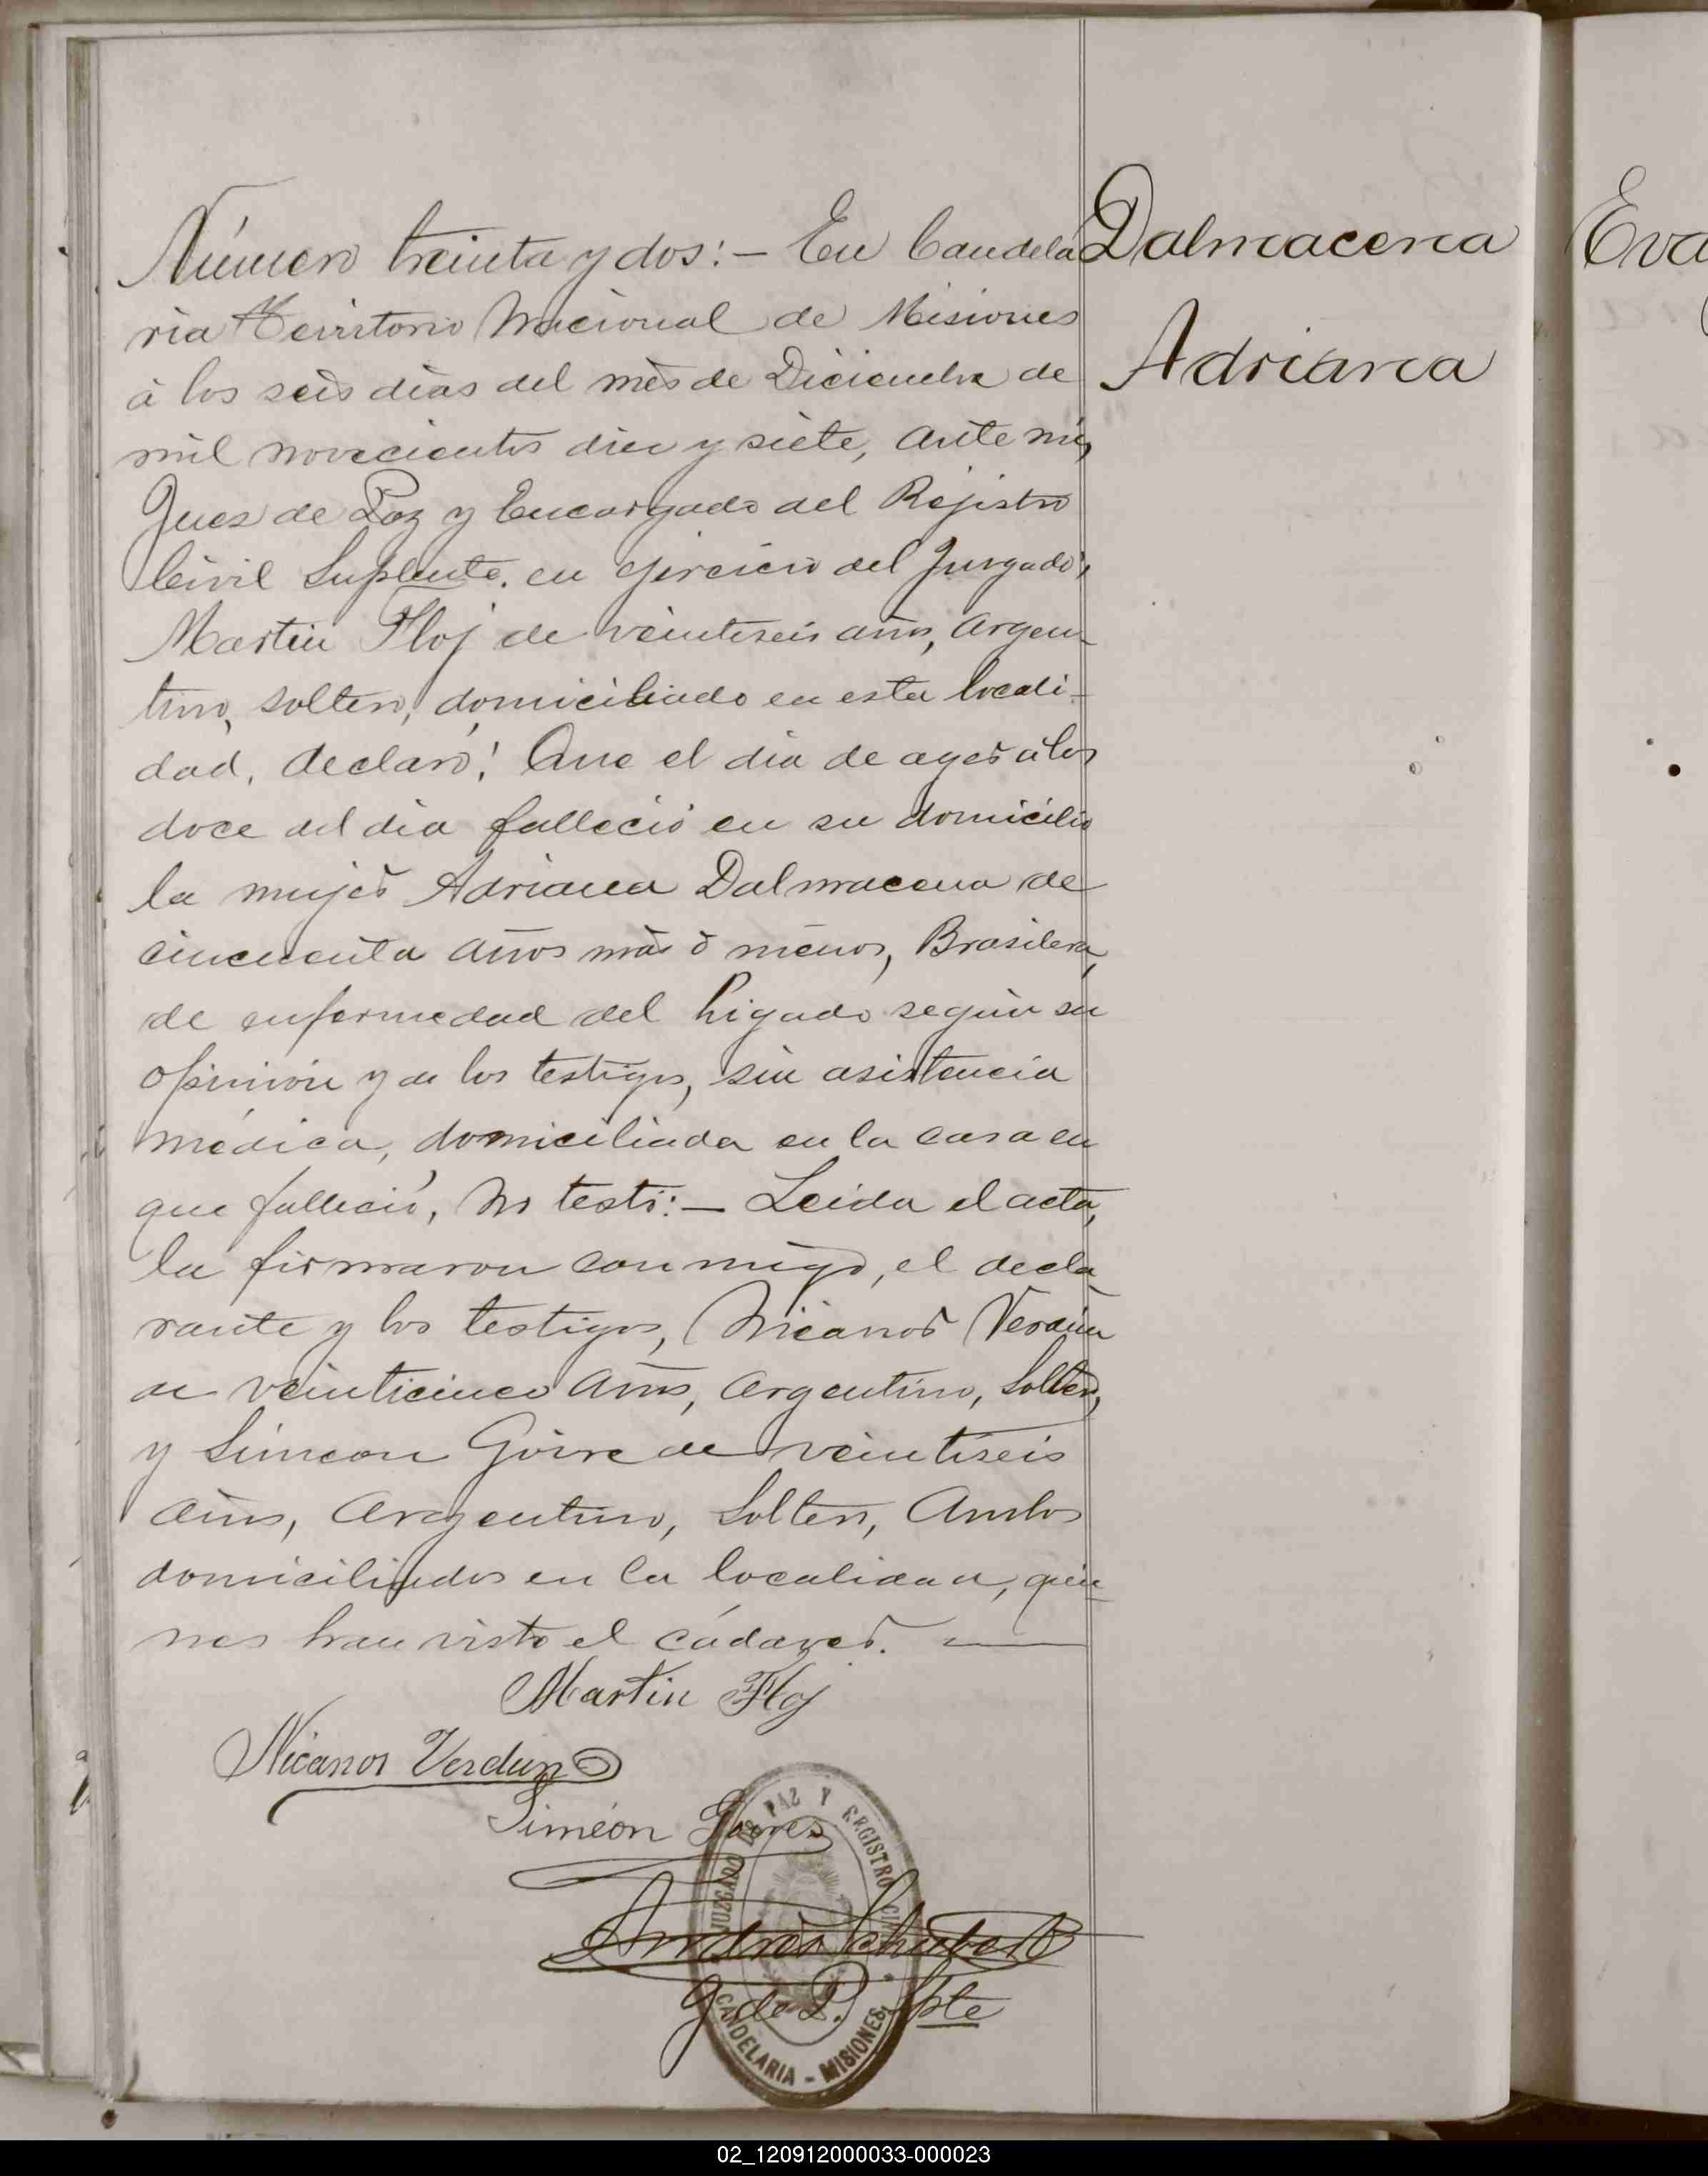 Número treinta y dos:- En Candela
Dalmacena
Eva
ria Territorio Nacional de Misiones
à los seis dias del mès de Diciembre de
Adriana
mil novecientos diez y siete, ante mi,
Jues de Paz y Encargado del Rejistro
Civil Suplente. en ejercicio del Jusgado,
Martin Floj de veintiseis años, argen-
tino, soltero, domiciliado en esta locali-
dad, declaró: Que el dia de ayer a las
doce del dia falleció en su domicilio
la mujer Adriana Dalmacena de
cincuenta años más ò menos, Brasilera,
de enfermedad del higado según su
opinión y de los testigos, sin asistencia
médica, domiciliada en la casa en
que falleció, no testó:- Leida el acta,
la firmaron conmigo, el decla
rante y los testigos, Nicanor Verdún
de veinticinco años, argentino, soltero,
y Simeon de veintiseis
años, argentino, soltero, Ambos
domiciliados en la localidad, quie-
nes han visto el cádaver.
Martin Floj
Nicanor Verdun
Simeón
JUZGADO DE PAZ Y REGISTRO CIVIL
Andrés Schubert
J. de P. Spte
CANDELARIA - MISIONES
02_120912000033-000023